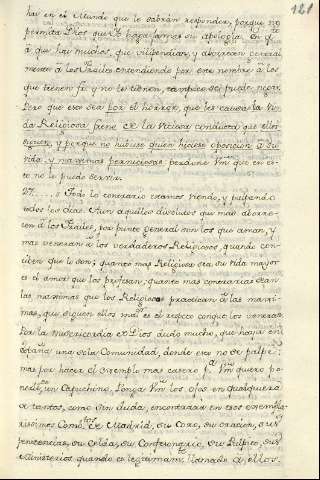 121
hai en el Mundo que le sabrán responder, porque no
permita Dios que se haga jamas su apologia. En q.to
á que hai muchos, que vilipendian, y aborrecen general
mente á los Frailes entendiendo por este nombre á los
que tienen fé y no la tienen, tampoco se puede negar.
Pero que eso sea por el horror, que les causa la Vi
da Religiosa agena de la viciosa conducta que ellos
siguen, y porque no hubiese quien hiciese oposicion á su
vida, y maximas perniciosas perdone Vm que en es
to no le puedo servir.
27..... Todo lo contrario estamos viendo, y palpando
todos los dias. Aun aquellos disolutos que mas aborre
cen á los Frailes, por punto general son los que aman, y
mas veneran á los verdaderos Religiosos, quando con
ciben que lo son; quanto mas Religiosa sea su vida mayor
es el amor que los profesan, quanto mas contrarias sean
las maximas que los Religiosos practican á las maxi
mas, que siguen ellos, maior es el respeto conque los veneran.
Por la misericordia de Dios dudo mucho, que haya en
España una sola Comunidad, donde esto no se palpe;
mas por hacer el exemplo mas casero p.a Vm quero po
nerle en Capuchino. Ponga Vm los ojos en qualquiera
de tantos, como sin duda, encontrará en esos exempla
rissimos Comb.tos de Madrid, su Coro, su oracion, sus
penitencias, su Celda, su Confesonario, su Pulpito, sus
Ministerios quando es legitimam.te llamado á ellos.